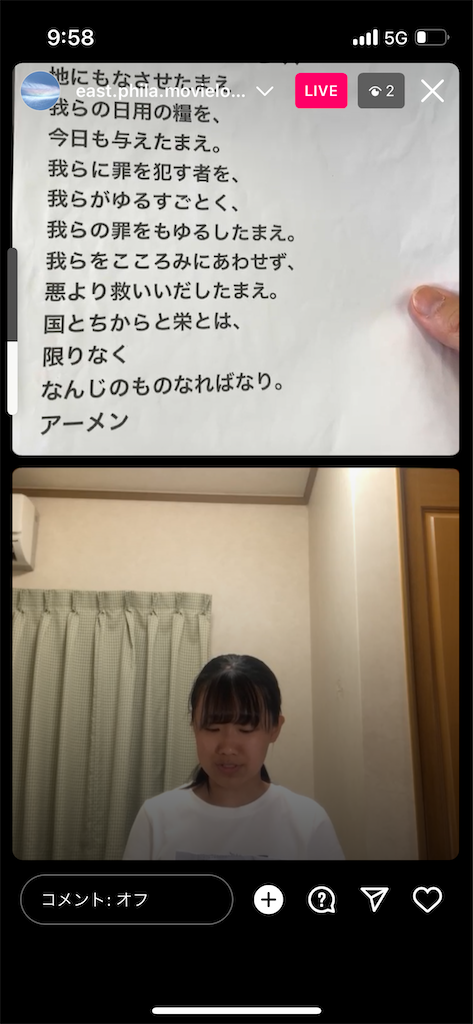 9:58
5G
地にもなさせたまえ
east.phila.movielo...
LIVE
2
我らの日用の糧を、
今日も与えたまえ。
我らに罪を犯す者を、
我らがゆるすごとく、
我らの罪をもゆるしたまえ。
我らをこころみにあわせず、
悪より救いいだしたまえ。
国とちからと栄とは、
限りなく
なんじのものなればなり。
アーメン
コメント: オフ